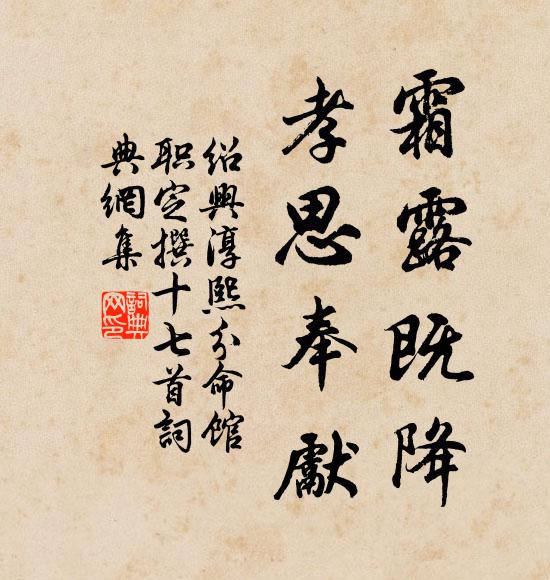 霜露既降
孝思奉獻
绍興淳熙分命館
职定撰十七首詞
典網集
詞典
网印